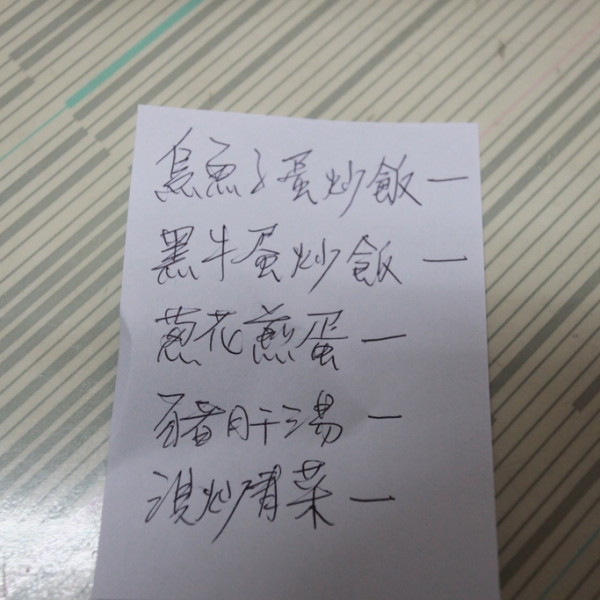 烏魚子蛋炒飯一
黑牛蛋炒飯 一
蔥花煎蛋一
豬肝湯 一
現炒青菜一